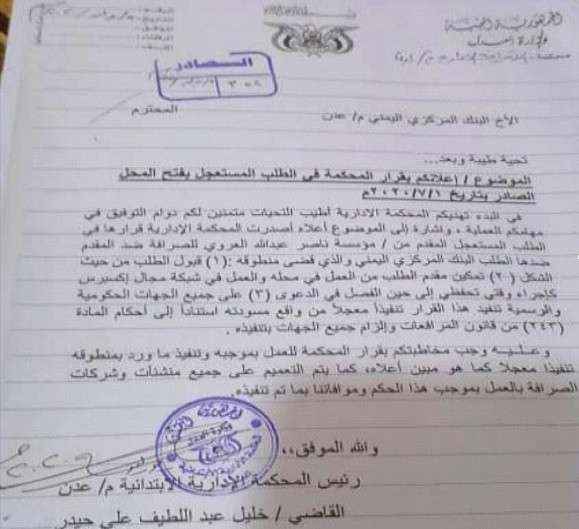 الجمهورية اليمنية
وزارة العدل
الصادر
الأخ البنك المركزي اليمني م/ عدن المحترم
تحية طيبة وبعد...
الموضوع / إعلانكم بقرار المحكمة في الطلب المستعجل بفتح المحل
الصادر بتاريخ ٢٠٢٠/٧/١م
في البدء تهديكم المحكمة الادارية أطيب التحيات متمنين لكم دوام التوفيق في
مهامكم العملية ، واشارة إلى الموضوع أعلاه أصدرت المحكمة الإدارية قرارها في
الطلب المستعجل المقدم من / مؤسسة ناصر عبدالله العروي للصرافة ضد المقدم
ضدها الطلب البنك المركزي اليمني والذي قضى منطوقه :(١) قبول الطلب من حيث
الشكل (٢) تمكين مقدم الطلب من العمل في محله والعمل في شبكة سجال إكسبرس
كإجراء وقتي تحفظي إلى حين الفصل في الدعوى (٣) على جميع الجهات الحكومية
والرسمية تنفيذ هذا القرار تنفيذاً معجلاً من واقع مسودته استناداً إلى أحكام المادة
(٢٤٣) من قانون المرافعات وإلزام جميع الجهات بتنفيذه .
وعليه وجب مخاطبتكم بقرار المحكمة للعمل بموجبه وتنفيذ ما ورد بمنطوقه
تنفيذا معجلا كما هو مبين أعلاه، كما يتم التعميم على جميع منشئات وشركات
الصرافة بالعمل بموجب هذا الحكم وموافاتنا بما تم تنفيذه .
والله الموفق،،
رئيس المحكمة الإدارية الابتدائية م/ عدن
القاضي / خليل عبد اللطيف علي حيدر